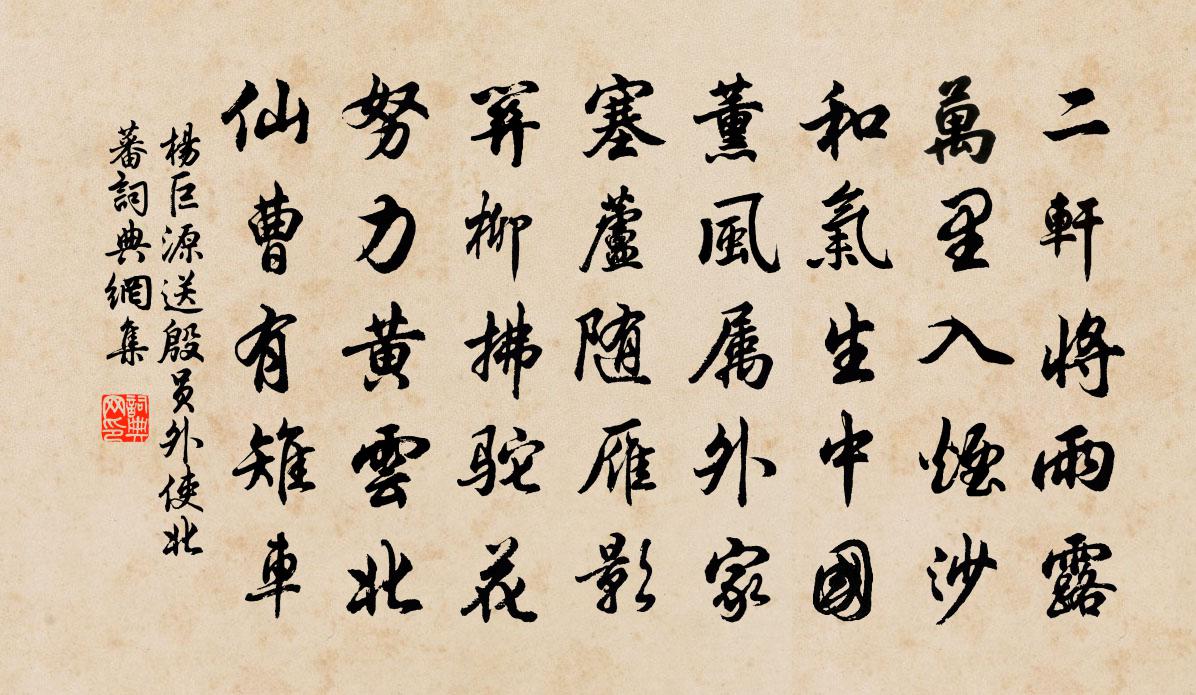 二軒將雨露
萬里入煙沙
和氣生中國
薰風属外家
塞蘆随雁影
關柳拂駝花
努力黃雲北
仙曹有雉車
楊巨源送殷員外使北
蕃詞典網集
詞典
网印